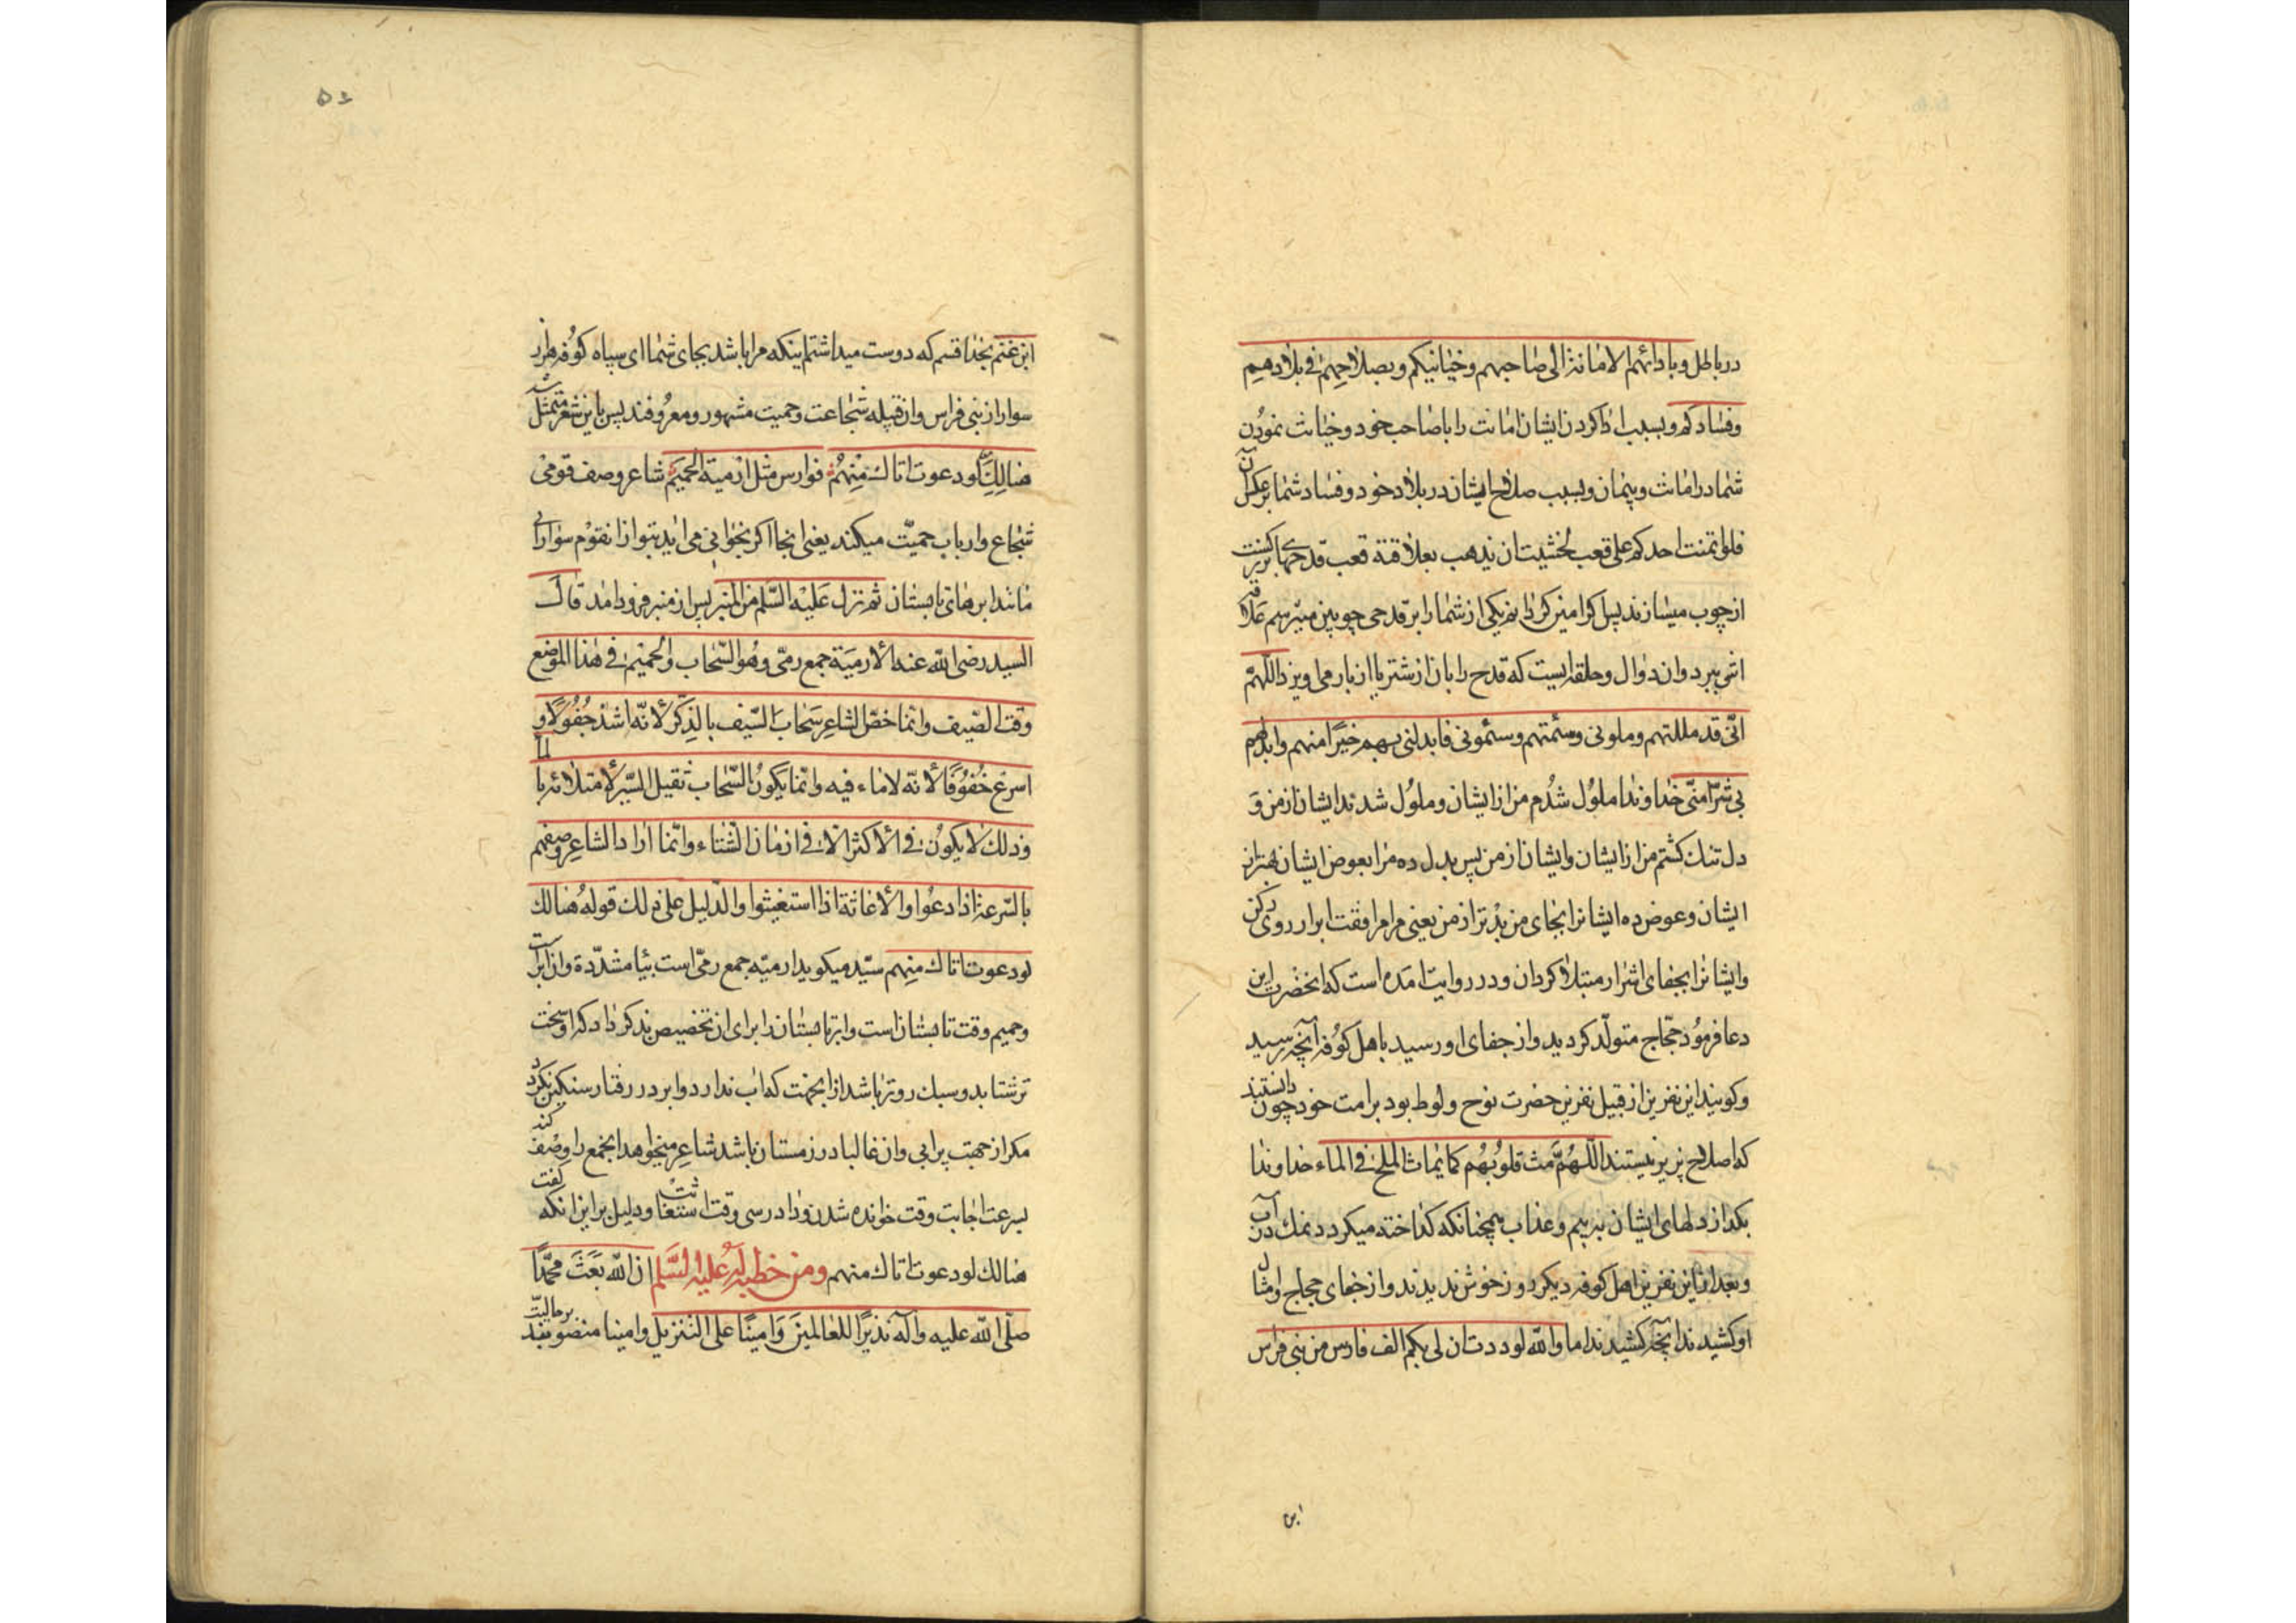 در باطل و بادائهم الامانة الی صاحبهم و خیانتکم و بصلاحهم فی بلادهم
و فسادکم و بسبب ادا کردن ایشان امانت را با صاحب خود و خیانت نمودن
شما در امانت و پیمان و بسبب صلاح ایشان در بلاد خود و فساد شما بر عکس آن
فلو ائتمنت احدکم علی قعب لخشیت ان یذهب بعلاقته قعب قدحی
از چوب میسازند پس اکر امین کردانم یکی از شما را بر قدحی چوبین میترسم
اش ببرد و ان دوال و حلقه ایست که قدح را بان از شتر یا از بار می اویزد اللّهمّ
انّی قد مللتهم و ملونی و سئمتهم و سئمونی فابدلنی بهم خیرًا منهم و ابدلهم
بی شرّا منّی خداوندا ملوُل شدُم من از ایشان و ملوُل شدند ایشان از من وَ
دل تنك کشتم من از ایشان و ایشان از من پس بدل ده مرا بعوض ایشان بهتر از
ایشان و عوض ده ایشانرا بجای من بدْتر از من یعنی مرا مرافقت ابرار روی کن
و ایشانرا بجفای اشرار مبتلا کردان و در روایت امده است که انحضرت این
دعا فرموُد حجّاج متولّد کردید و از جفای او رسید باهل کوُفه آنچه رسید
و کویند این نفرین از قبیل نفرین حضرت نوح و لوط بود بر امت خود چون دانستند
که اصلاح پزیر نیستند اللّهُمَّ مث قلوبُهُم کما یماث الملح فی الماء خداوندا
بکداز دلهای ایشان به بیم و عذاب همچنانکه کداخته میکردد نمك در آب
و بعد از این نفرین اهل کوفه دیکر روز خوش ندیدند و از جفای حجاج و امثال
او کشیدند آنچه کشیدند اما و اللّه لوددت ان لی بکم الف فارس من بنی فراس
ابن
۵۴
ابن غنم بخدا قسم که دوست میداشتم اینکه مرا باشد بجای شما ای سپاه کوُفه هزار
سوار از بنی فراس و ان قبیله شجاعت و حمیت مشهور و معرُوفند پس باین شعر متمثل شد
هنالِكَ لو دعوت اتاك مِنْهُمْ فوارس مثل ارمیة الحمیم شاعر وصف قومی
شجاع و ارباب حمیّت میکند یعنی انجا اکر بخوانی می ایند بتو از انقوْم سواران
مانند ابرهای تابستان ثم نزل عَلیْه السّلم من المنبر پس از منبر فرود امد قال
السید رضی اللّه عنه الارمیَة جمع رمیّ و هُو السّحاب و الحمیم فی هذا الموضع
وقت الصّیف و انّما خصّ الشاعر سَحابَ الصّیف بالذِکر لانّه اشدّ جُفُولًا و
اسرع خُفُوفًا لانّه لا ماء فیه و انّما یکُونُ السّحاب ثقیل السّیر لامتلائه بالماء
و ذلك لا یکُونُ فی الاکثر الّا فی ازمان الشّتاء و انّما اراد الشاعر وصفهم
بالسّرعة اذا دعُوا و الاغاثة اذا استغیثوا و الدّلیل علی ذلك قوله هُنالك
لو دعوت اتاك منهم سیّد میکوید ارمیّه جمع رمیّ است بیا مشدّدة و ان ابر است
و حمیم وقت تابستان است و ابر تابستان را برای ان تخصیص بذکر داد که او سخت
تر شتابد و سبك رو تر باشد از انجهت که اب ندارد و ابر در رفتار سنکین نکردد
مکر از جهت پر ابی و ان غالبا در زمستان باشد شاعر میخواهد انجمع را وصف کند
بسرعت اجابت وقت خوانده شدن و دادرسی وقت استغاثت و دلیل بر این انکه گفت
هنالك لو دعوت اتاك منهم و من خطبة له علیه السّلم ان اللّه بَعَثَ محمّدًا
صلّی اللّه علیه و آله نذیرًا للعالمینَ وَ امینًا علی التنزیل و امینا